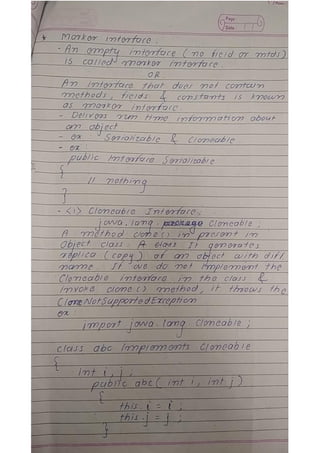 Page
Date
* Marker interface.
- An empty interface (no field or mtds)
is called marker interface.
OR
An interface that does not contain
methods, fields & constants is known
as marker interface
- Delivers run time information about
an object
- ex Serializable & Cloneable
- ex:
public interface Serializable
{
// nothing
}
- <1> Cloneable Interface,
java.lang. package Cloneable;
A method clone() in present in
Object class. A class. It generates
replica (copy) of an object with diff
name. If we do not implement the
Cloneable interface in the class &
invoke clone() method, it throws the
CloneNotSupportedException
ex
import java.lang.Cloneable;
class abc implements Cloneable
{
int i, j;
public abc(int i, int j)
{
this.i = i;
this.j = j;
}